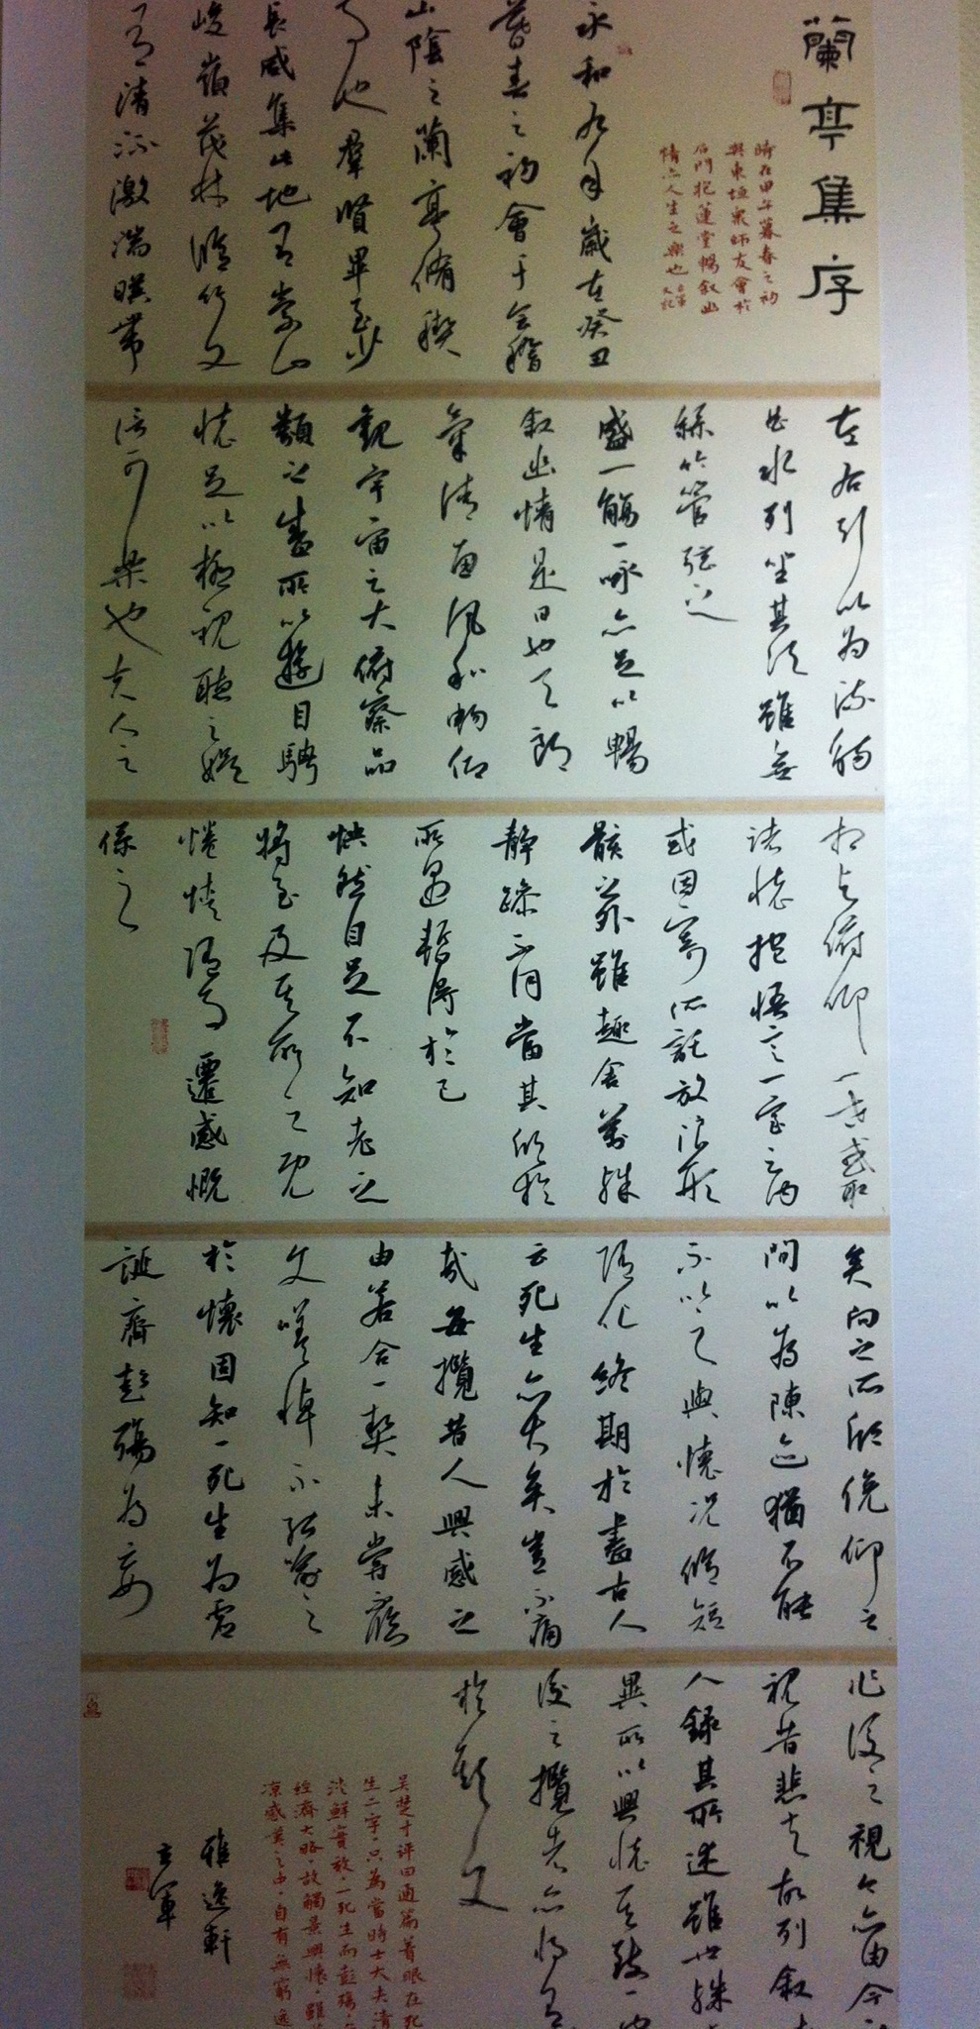 蘭亭集序
時在甲午暮春之初
與東垣眾師友會於
石門抱蓮堂暢敘幽
情亦人生之樂也
永和九年歲在癸丑
暮春之初會于會稽
山陰之蘭亭脩禊
事也羣賢畢至少
長咸集此地有崇山
峻嶺茂林脩竹又
有清流激湍暎帶
左右引以為流觴
曲水列坐其次雖無
絲竹管弦之
盛一觴一咏亦足以暢
敘幽情是日也天朗
氣清惠風和暢仰
觀宇宙之大俯察品
類之盛所以遊目騁
懷足以極視聽之娛
信可樂也夫人之
相與俯仰一世或取
諸懷抱悟言一室之內
或因寄所託放浪形
骸之外雖趣舍萬殊
靜躁不同當其欣於
所遇暫得於己
快然自足不知老之
將至及其所之既
惓情隨事遷感慨
係之
矣向之所欣俛仰之
間以為陳迹猶不能
不以之興懷況脩短
隨化終期於盡古人
云死生亦大矣豈不痛
哉每攬昔人興感之
由若合一契未嘗臨
文嗟悼不能喻之
於懷固知一死生為虛
誕齊彭殤為妄
作後之視今亦由今
視昔悲夫故列敘
人錄其所述雖世殊
異所以興懷其致一也
後之攬者亦將有
於斯文
吳楚才評曰通篇着眼在死
生二字只為當時士大夫清
談鮮實效一死生而齊彭殤
經濟大略故觸景興懷雖
涼感慨之中自有無窮逸
雅逸軒
玄軍